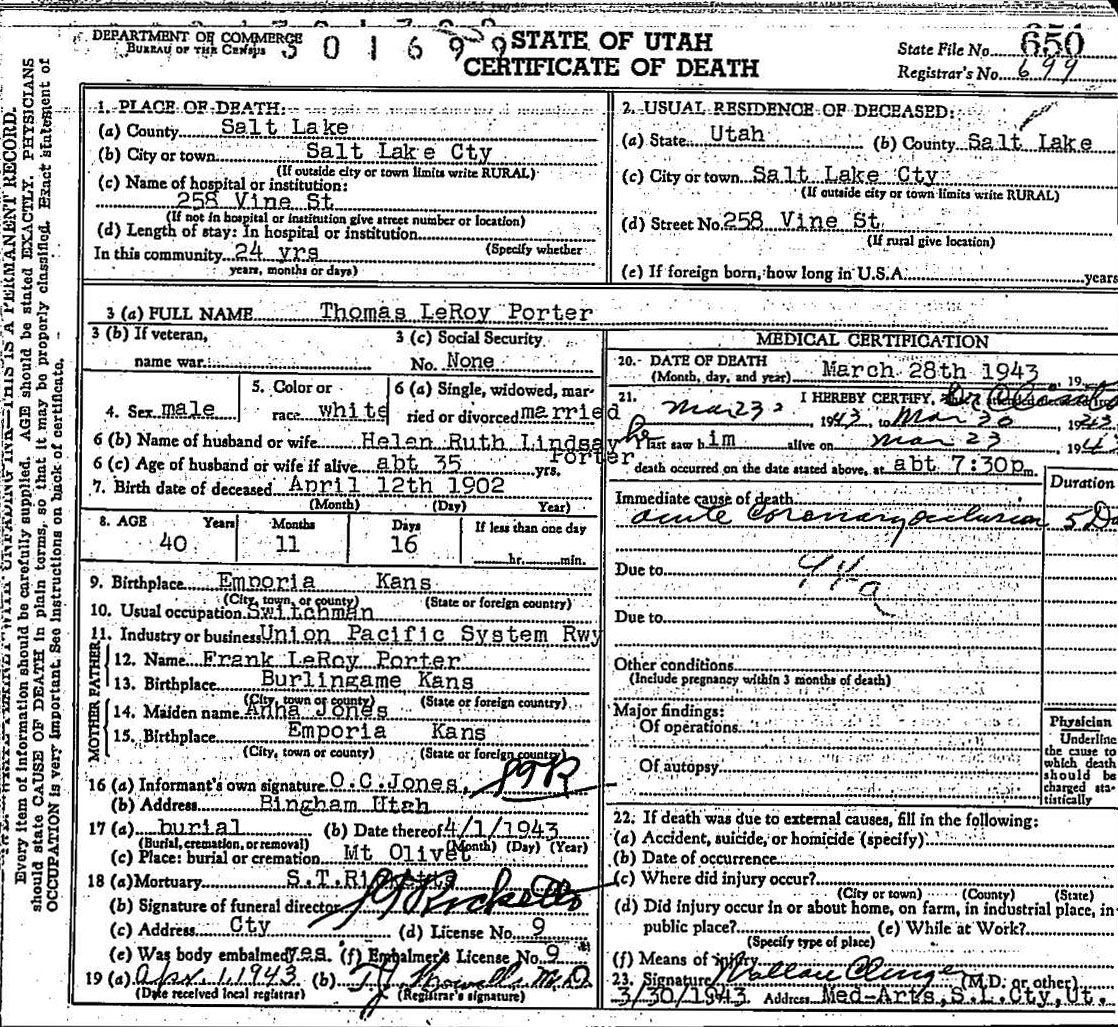 DEPARTMENT OF COMMERCE
BUREAU OF THE CENSUS
3 0 1 6 9 9
STATE OF UTAH
CERTIFICATE OF DEATH
State File No. 650
Registrar's No. 699
Every item of information should be carefully supplied. AGE should be stated EXACTLY. PHYSICIANS
should state CAUSE OF DEATH in plain terms, so that it may be properly classified. Exact statement of
OCCUPATION is very important. See instructions on back of certificate.
THIS IS A PERMANENT RECORD.
1. PLACE OF DEATH:
(a) County Salt Lake
(b) City or town Salt Lake Cty
(If outside city or town limits write RURAL)
(c) Name of hospital or institution:
258 Vine St
(If not in hospital or institution give street number or location)
(d) Length of stay: In hospital or institution
(Specify whether
In this community 24 yrs
years, months or days)
2. USUAL RESIDENCE OF DECEASED:
(a) State Utah (b) County Salt Lake
(c) City or town Salt Lake Cty
(If outside city or town limits write RURAL)
(d) Street No. 258 Vine St
(If rural give location)
(e) If foreign born, how long in U.S.A. years
3 (a) FULL NAME Thomas LeRoy Porter
3 (b) If veteran,
name war
3 (c) Social Security
No. None
4. Sex male
5. Color or
race white
6 (a) Single, widowed, mar-
ried or divorced married
6 (b) Name of husband or wife Helen Ruth Lindsay
Porter
6 (c) Age of husband or wife if alive abt 35 yrs.
7. Birth date of deceased April 12th 1902
(Month) (Day) Year)
8. AGE Years Months Days If less than one day
40 11 16 hr. min.
9. Birthplace Emporia Kans
(City, town, or county) (State or foreign country)
10. Usual occupation Switchman
11. Industry or business Union Pacific System Rwy
FATHER
12. Name Frank LeRoy Porter
13. Birthplace Burlingame Kans
(City, town of county) (State or foreign country)
MOTHER
14. Maiden name Anna Jones
15. Birthplace Emporia Kans
(City, town or county) (State or foreign country)
16 (a) Informant's own signature O.C.Jones,
(b) Address Bingham Utah
17 (a) burial (b) Date thereof 4/1/1943
(Burial, cremation, or removal) (Month) (Day) (Year)
(c) Place: burial or cremation Mt Olivet
18 (a) Mortuary S.T.Ricketts
(b) Signature of funeral director Ricketts
(c) Address Cty (d) License No. 9
(e) Was body embalmed yes. (f) Embalmer's License No. 9
19 (a) Apr. 1, 1943 (b) M.D.
(Date received local registrar) (Registrar's signature)
MEDICAL CERTIFICATION
20. DATE OF DEATH
(Month, day, and year) March 28th 1943 19
21. I HEREBY CERTIFY,
Mar 23 1943, to Mar 1943
last saw him alive on Mar 23, 194
death occurred on the date stated above, at abt 7:30pm.
Duration
Immediate cause of death
acute coronary occlusion 5 Da
Due to
94a
Due to
Other conditions
(Include pregnancy within 3 months of death)
Major findings:
Of operations
Of autopsy
Physician
Underline
the cause to
which death
should be
charged sta-
tistically
22. If death was due to external causes, fill in the following:
(a) Accident, suicide, or homicide (specify)
(b) Date of occurrence
(c) Where did injury occur?
(City or town) (County) (State)
(d) Did injury occur in or about home, on farm, in industrial place, in
public place? (e) While at Work?
(Specify type of place)
(f) Means of injury
23. Signature (M.D. or other)
3/30/1943 Address Med-Arts, S.L.Cty, Ut.